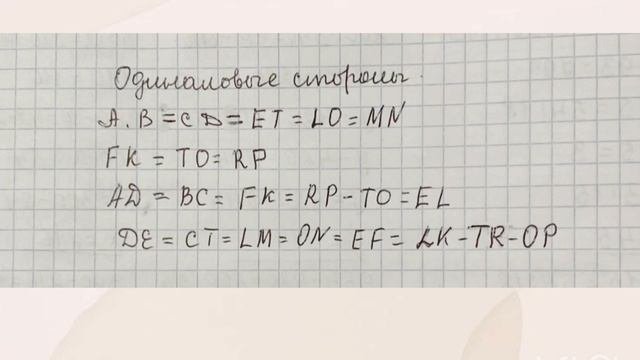 Одинаковые стороны.
A.B = CD = ET = LO = MN
FK = TO = RP
AD = BC = FK = RP - TO = EL
DE = CT = LM = ON = EF = LK - TR - OP